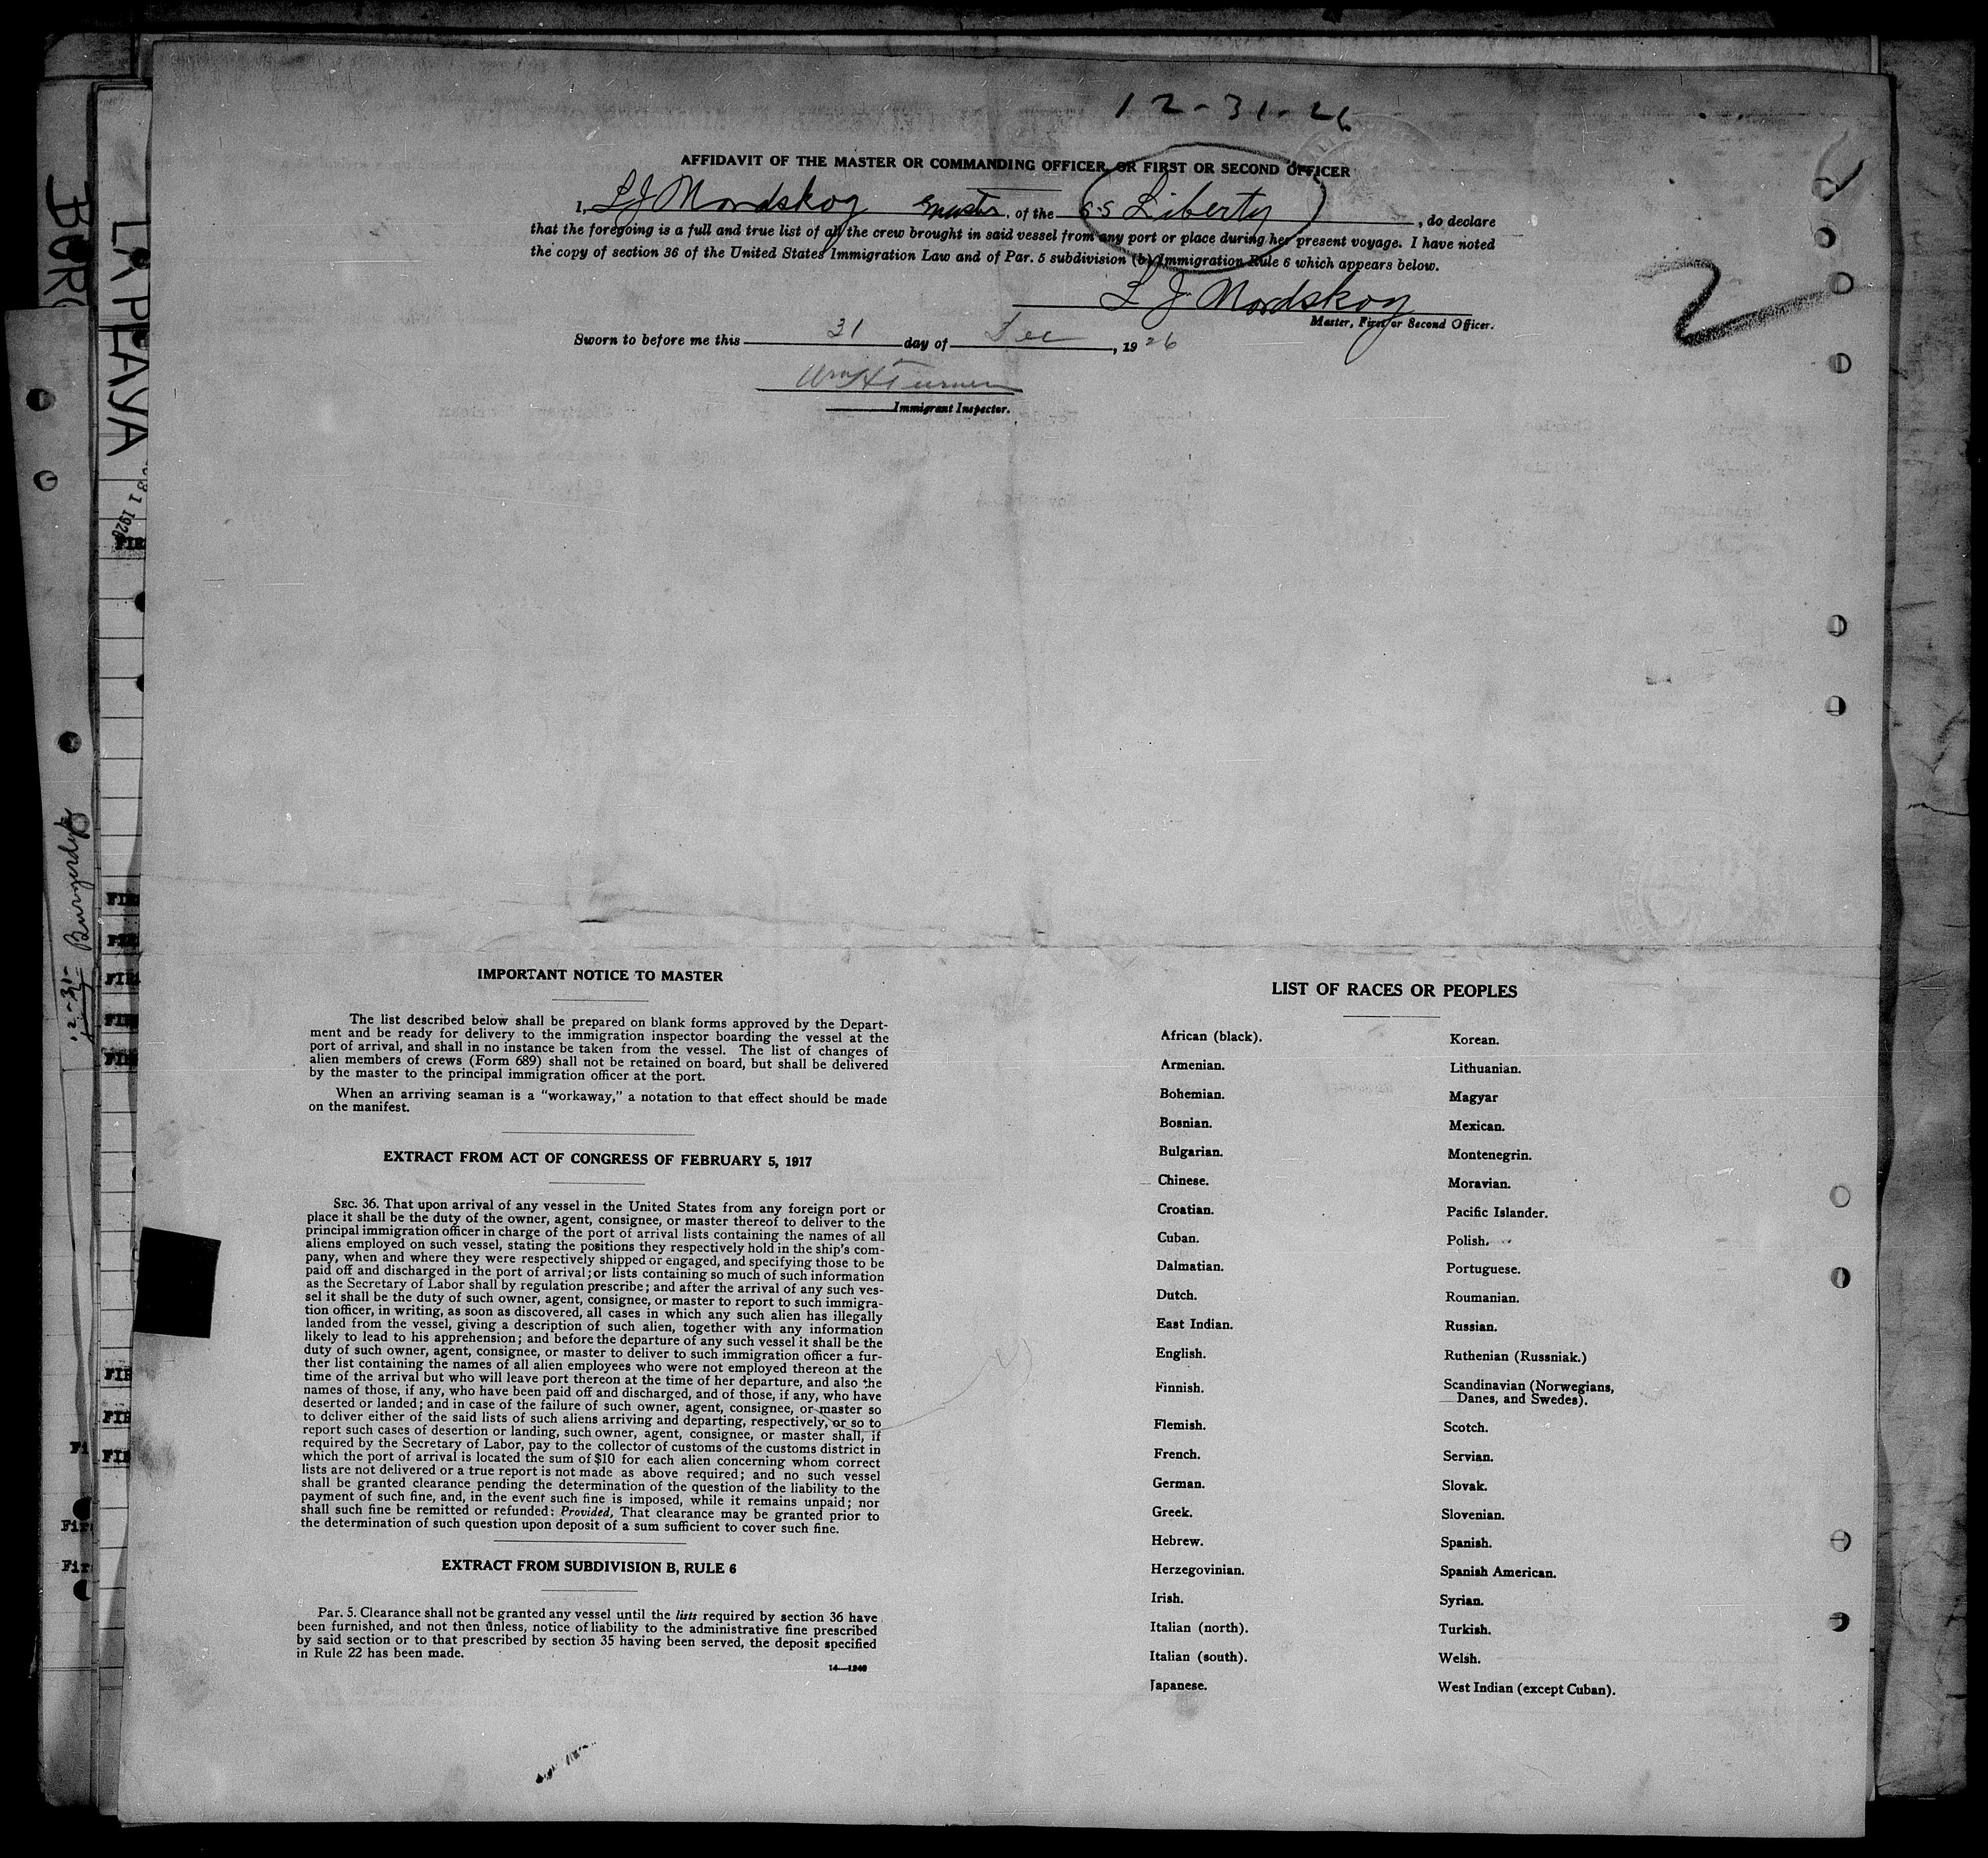 12-31-26
AFFIDAVIT OF THE MASTER OR COMMANDING OFFICER, OR FIRST OR SECOND OFFICER
I, L J Nordskog master, of the SS Liberty, do declare
that the foregoing is a full and true list of all the crew brought in said vessel from any port or place during her present voyage. I have noted
the copy of section 36 of the United States Immigration Law and of Par. 5 subdivision (b) Immigration Rule 6 which appears below.
L J Nordskog
Master, First or Second Officer.
2
Sworn to before me this 31 day of Dec, 1926
Wm H Turner
Immigrant Inspector.
LA PLAYA
IMPORTANT NOTICE TO MASTER
The list described below shall be prepared on blank forms approved by the Depart-
ment and be ready for delivery to the immigration inspector boarding the vessel at the
port of arrival, and shall in no instance be taken from the vessel. The list of changes of
alien members of crews (Form 689) shall not be retained on board, but shall be delivered
by the master to the principal immigration officer at the port.
When an arriving seaman is a "workaway," a notation to that effect should be made
on the manifest.
EXTRACT FROM ACT OF CONGRESS OF FEBRUARY 5, 1917
SEC. 36. That upon arrival of any vessel in the United States from any foreign port or
place it shall be the duty of the owner, agent, consignee, or master thereof to deliver to the
principal immigration officer in charge of the port of arrival lists containing the names of all
aliens employed on such vessel, stating the positions they respectively hold in the ship's com-
pany, when and where they were respectively shipped or engaged, and specifying those to be
paid off and discharged in the port of arrival; or lists containing so much of such information
as the Secretary of Labor shall by regulation prescribe; and after the arrival of any such ves-
sel it shall be the duty of such owner, agent, consignee, or master to report to such immigra-
tion officer, in writing, as soon as discovered, all cases in which any such alien has illegally
landed from the vessel, giving a description of such alien, together with any information
likely to lead to his apprehension; and before the departure of any such vessel it shall be the
duty of such owner, agent, consignee, or master to deliver to such immigration officer a fur-
ther list containing the names of all alien employees who were not employed thereon at the
time of the arrival but who will leave port thereon at the time of her departure, and also the
names of those, if any, who have been paid off and discharged, and of those, if any, who have
deserted or landed; and in case of the failure of such owner, agent, consignee, or master so
to deliver either of the said lists of such aliens arriving and departing, respectively, or so to
report such cases of desertion or landing, such owner, agent, consignee, or master shall, if
required by the Secretary of Labor, pay to the collector of customs of the customs district in
which the port of arrival is located the sum of $10 for each alien concerning whom correct
lists are not delivered or a true report is not made as above required; and no such vessel
shall be granted clearance pending the determination of the question of the liability to the
payment of such fine, and, in the event such fine is imposed, while it remains unpaid; nor
shall such fine be remitted or refunded: Provided, That clearance may be granted prior to
the determination of such question upon deposit of a sum sufficient to cover such fine.
EXTRACT FROM SUBDIVISION B, RULE 6
Par. 5. Clearance shall not be granted any vessel until the lists required by section 36 have
been furnished, and not then unless, notice of liability to the administrative fine prescribed
by said section or to that prescribed by section 35 having been served, the deposit specified
in Rule 22 has been made.
14—1240
LIST OF RACES OR PEOPLES
African (black).
Armenian.
Bohemian.
Bosnian.
Bulgarian.
Chinese.
Croatian.
Cuban.
Dalmatian.
Dutch.
East Indian.
English.
Finnish.
Flemish.
French.
German.
Greek.
Hebrew.
Herzegovinian.
Irish.
Italian (north).
Italian (south).
Japanese.
Korean.
Lithuanian.
Magyar
Mexican.
Montenegrin.
Moravian.
Pacific Islander.
Polish.
Portuguese.
Roumanian.
Russian.
Ruthenian (Russniak.)
Scandinavian (Norwegians,
Danes, and Swedes).
Scotch.
Servian.
Slovak.
Slovenian.
Spanish.
Spanish American.
Syrian.
Turkish.
Welsh.
West Indian (except Cuban).